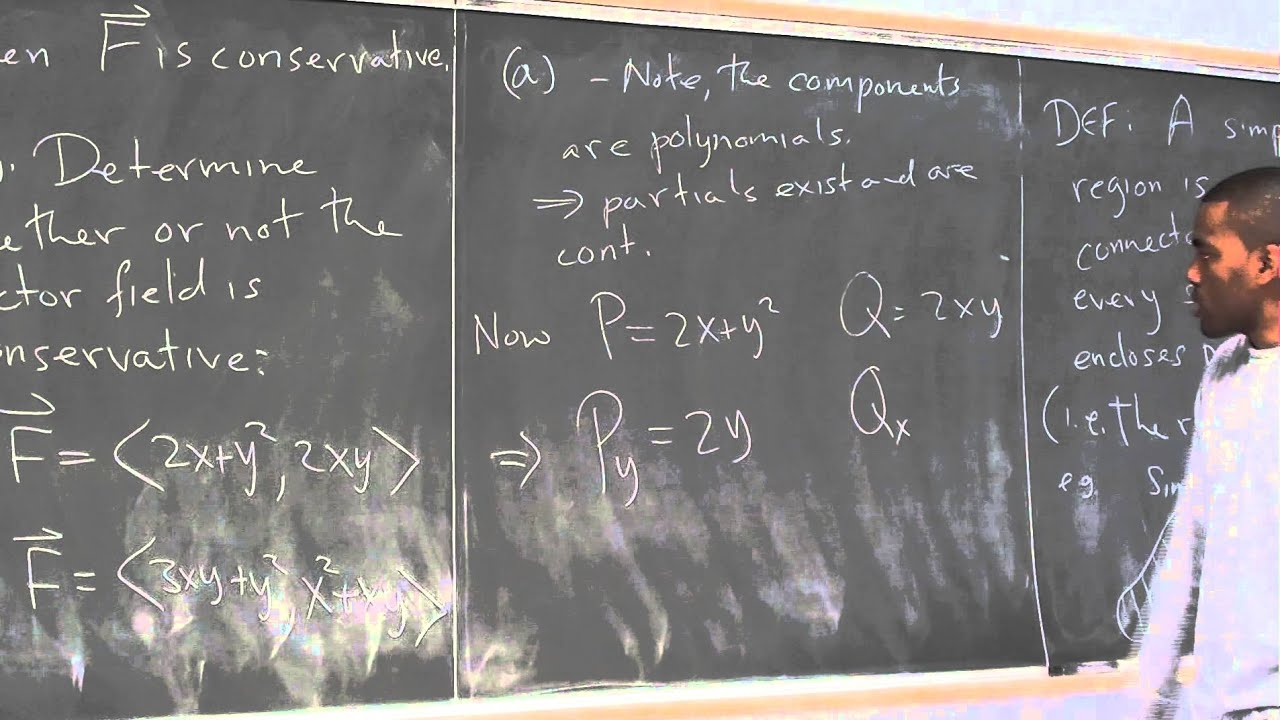 F⃗ is conservative.
Determine
or not the
field is
F⃗ = <2x+y², 2xy>
F⃗ = <3xy+y², x²+xy>
(a) - Note, the components
are polynomials.
⇒ partials exist and are
cont.
Now P=2x+y² Q=2xy
⇒ P_y = 2y Q_x
DEF: A
region is
every
encloses
(i.e. the
e.g.